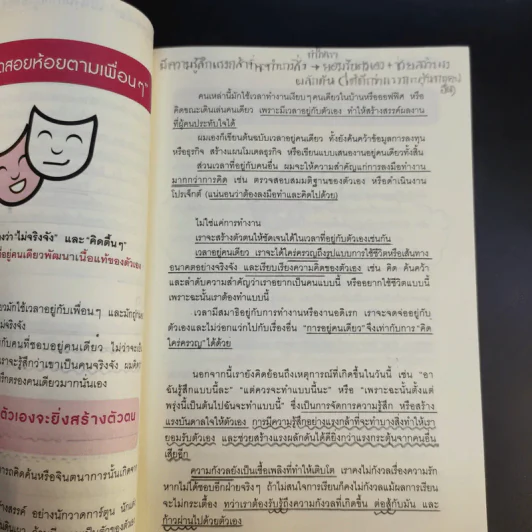 สอยห้อยตามเพื่อนๆ"
ว่า "ไม่จริงจัง" และ "คิดตื้นๆ"
อยู่คนเดียวพัฒนาเนื้อแท้ของตัวเอง
มักใช้เวลาอยู่กับเพื่อนๆ
จริงจัง
กับคนที่ชอบอยู่คนเดียว ไม่ว่าจะ
เราจะรู้สึกว่าเขาเป็นคนจริงจัง
ตัวเองจะยิ่งสร้างตัวตน
ารถคิดค้นหรือจินตนาการนั้นเกิดจาก
งสรรค์ อย่างนักวาดการ์ตูน
มีความรู้สึกแรงกล้า
คนเหล่านี้มักใช้เวลาทำงานเงียบๆคนเดียวในบ้านหรือออฟฟิศ หรือ
คิดขณะเดินเล่นคนเดียว เพราะมีเวลาอยู่กับตัวเอง ทำให้สร้างสรรค์ผลงาน
ที่ผู้คนประทับใจได้
ผมเองก็เขียนต้นฉบับเวลาอยู่คนเดียว ทั้งยังค้นคว้าข้อมูลการลงทุน
หรือธุรกิจ สร้างแผนโมเดลธุรกิจ หรือเขียนแบบเสนองานอยู่คนเดียวทั้งสิ้น
ส่วนเวลาที่อยู่กับคนอื่น ผมจะให้ความสำคัญแก่การลงมือทำงาน
มากกว่าการคิด เช่น ตรวจสอบสมมติฐานของตัวเอง หรือดำเนินงาน
โปรเจ็กต์ (แน่นอนว่าต้องลงมือทำและคิดไปด้วย)
ไม่ใช่แค่การทำงาน
เราจะสร้างตัวตนให้ชัดเจนได้ในเวลาที่อยู่กับตัวเองเช่นกัน
เวลาอยู่คนเดียว เราจะได้ใคร่ครวญถึงรูปแบบการใช้ชีวิตหรือเส้นทาง
อนาคตอย่างจริงจัง และเรียบเรียงความคิดของตัวเอง เช่น คิด ค้นคว้า
และลำดับความสำคัญว่าเราอยากเป็นคนแบบนี้ หรืออยากใช้ชีวิตแบบนี้
เพราะฉะนั้นเราต้องทำแบบนี้
เวลามีสมาธิอยู่กับการทำงานหรืองานอดิเรก เราจะจดจ่ออยู่กับ
ตัวเองและไม่วอกแวกไปกับเรื่องอื่น "การอยู่คนเดียว" จึงเท่ากับการ "คิด
ใคร่ครวญ" ได้ด้วย
นอกจากนี้เรายังคิดย้อนถึงเหตุการณ์ที่เกิดขึ้นในวันนี้ เช่น "อา
ฉันรู้สึกแบบนี้ละ" "แต่ควรจะทำแบบนี้นะ" หรือ "เพราะฉะนั้นตั้งแต่
พรุ่งนี้เป็นต้นไปฉันจะทำแบบนี้" ซึ่งเป็นการจัดการความรู้สึก หรือสร้าง
แรงบันดาลใจให้ตัวเอง การมีความรู้สึกอย่างแรงกล้าที่จะทำบางสิ่งทำให้เรา
ยอมรับตัวเอง และช่วยสร้างแรงผลักดันได้ดียิ่งกว่าแรงกระตุ้นจากคนอื่น
เสียอีก
ความกังวลยังเป็นเชื้อเพลิงที่ทำให้เติบโต เราคงไม่กังวลเรื่องความรัก
หากไม่ได้ชอบอีกฝ่ายจริงๆ ถ้าไม่สนใจการเรียนก็คงไม่กังวลแม้ผลการเรียน
จะไม่กระเตื้อง ทว่าเราต้องรับรู้ถึงความกังวลที่เกิดขึ้น ต่อสู้กับมัน และ
ก้าวผ่านไปด้วยตัวเอง